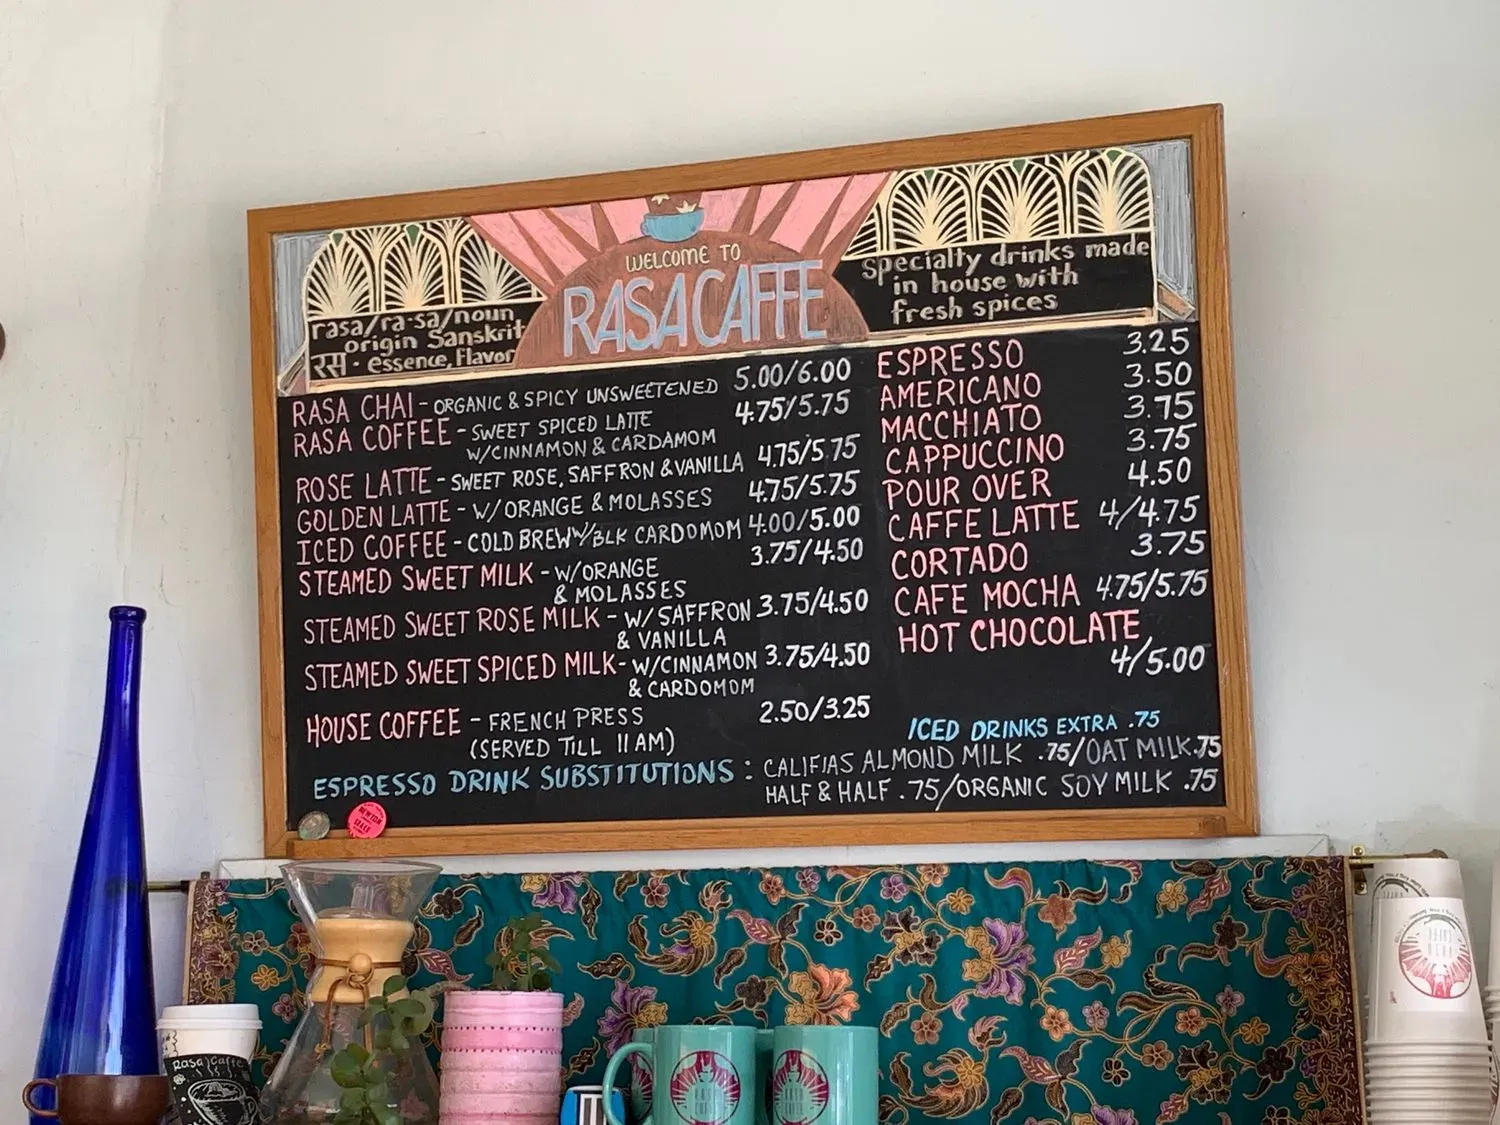 WELCOME TO
RASA CAFFE
rasa/ra·sa/noun
origin Sanskrit
रस · essence, Flavor
Specialty drinks made
in house with
fresh spices
RASA CHAI - ORGANIC & SPICY UNSWEETENED 5.00/6.00
RASA COFFEE - SWEET SPICED LATTE 4.75/5.75
W/CINNAMON & CARDAMOM
ROSE LATTE - SWEET ROSE, SAFFRON & VANILLA 4.75/5.75
GOLDEN LATTE - W/ORANGE & MOLASSES 4.75/5.75
ICED COFFEE - COLD BREW W/BLK CARDOMOM 4.00/5.00
STEAMED SWEET MILK - W/ORANGE 3.75/4.50
& MOLASSES
STEAMED SWEET ROSE MILK - W/SAFFRON 3.75/4.50
& VANILLA
STEAMED SWEET SPICED MILK - W/CINNAMON 3.75/4.50
& CARDOMOM
HOUSE COFFEE - FRENCH PRESS 2.50/3.25
(SERVED TILL 11 AM)
ESPRESSO 3.25
AMERICANO 3.50
MACCHIATO 3.75
CAPPUCCINO 3.75
POUR OVER 4.50
CAFFE LATTE 4/4.75
CORTADO 3.75
CAFE MOCHA 4.75/5.75
HOT CHOCOLATE
4/5.00
ICED DRINKS EXTRA .75
ESPRESSO DRINK SUBSTITUTIONS : CALIFIAS ALMOND MILK .75/OAT MILK .75
HALF & HALF .75/ORGANIC SOY MILK .75
Rasa Caffe
RASA
CAFFE